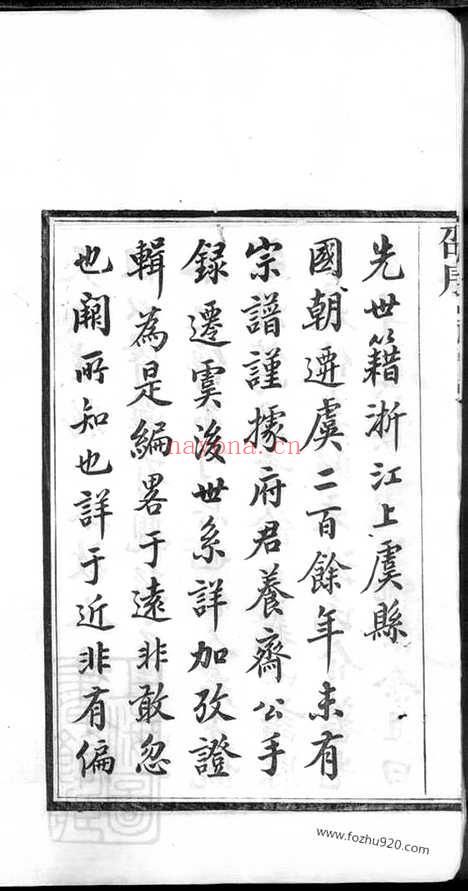 先世籍浙江上虞縣
國朝遷虞二百餘年未有
宗譜謹據府君養齋公手
錄遷虞後世系詳加攷證
輯為是編畧于遠非敢忽
也闕所知也詳于近非有偏
nayona.cn
www.fozhu920.com